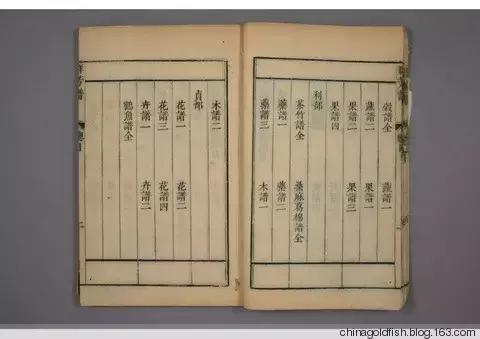 穀譜全 蔬譜一
蔬譜二 果譜一
果譜二 果譜三
果譜四
利部
茶竹譜全 桑麻葛棉譜全
藥譜一 藥譜二
藥譜三 木譜一
木譜二
貞部
花譜一 花譜二
花譜三 花譜四
卉譜一 卉譜二
鶴魚譜全
chinagoldfish.blog.163.com